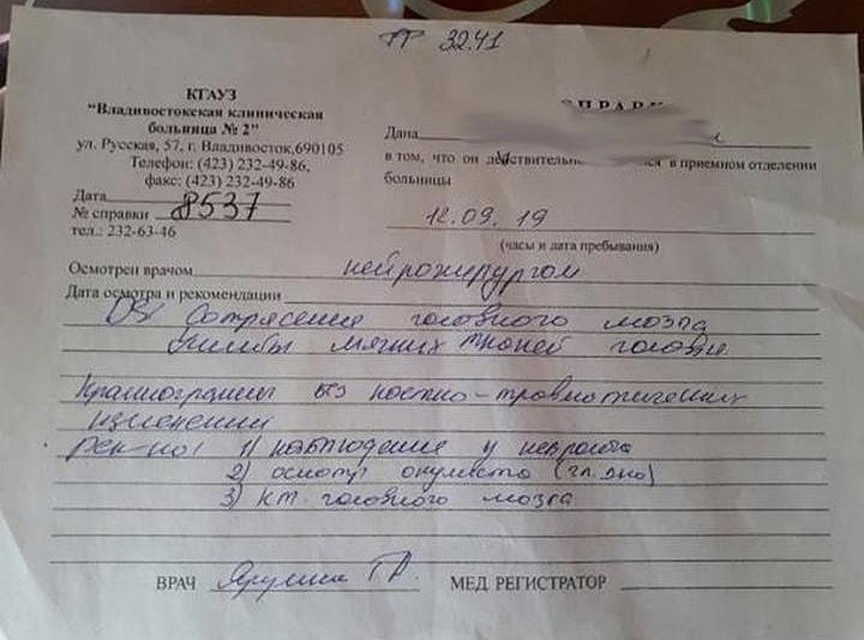 ТР 3241
КГАУЗ
"Владивостокская клиническая
больница № 2"
ул. Русская, 57, г. Владивосток, 690105
Телефон: (423) 232-49-86,
факс: (423) 232-49-86
Дата
№ справки 8537
тел.: 232-63-46
Дана
в том, что он действительно в приемном отделении
больницы
12.09.19
(часы и дата пребывания)
Осмотрен врачом нейрохирургом
Дата осмотра и рекомендации
DS: Сотрясение головного мозга
Ушибы мягких тканей головы.
Краниограммы без костно-травматических
изменений
Рек-но: 1) наблюдение у невролога
2) осмотр окулиста (гл. дно)
3) КТ головного мозга
ВРАЧ МЕД. РЕГИСТРАТОР